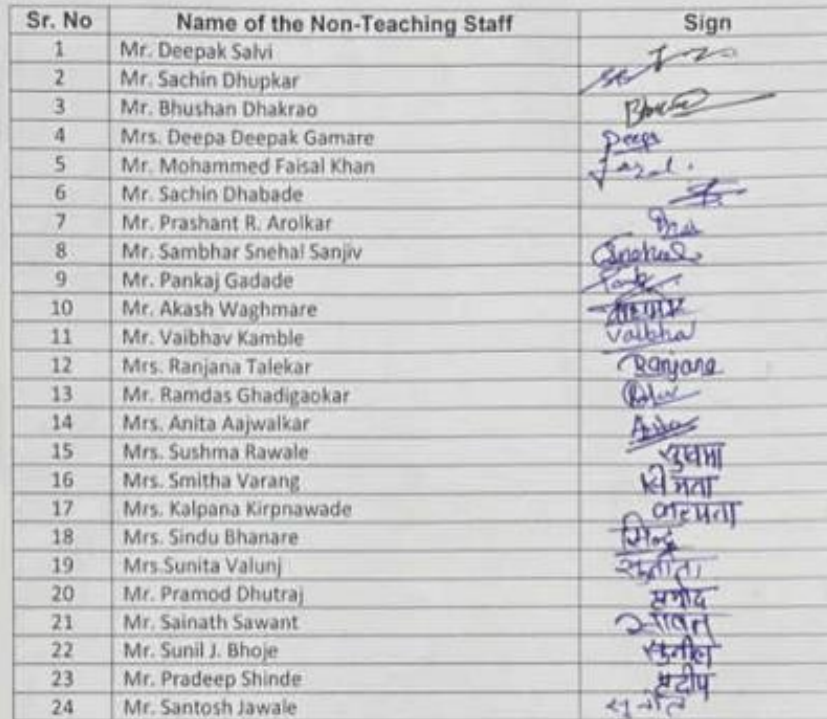 Sr. No Name of the Non-Teaching Staff Sign
1 Mr. Deepak Salvi
2 Mr. Sachin Dhupkar
3 Mr. Bhushan Dhakrao
4 Mrs. Deepa Deepak Gamare Deepa
5 Mr. Mohammed Faisal Khan
6 Mr. Sachin Dhabade
7 Mr. Prashant R. Arolkar
8 Mr. Sambhar Snehal Sanjiv Snehal
9 Mr. Pankaj Gadade
10 Mr. Akash Waghmare
11 Mr. Vaibhav Kamble Vaibhav
12 Mrs. Ranjana Talekar Ranjana
13 Mr. Ramdas Ghadigaokar
14 Mrs. Anita Aajwalkar Anita
15 Mrs. Sushma Rawale सुषमा
16 Mrs. Smitha Varang स्मिता
17 Mrs. Kalpana Kirpnawade कल्पना
18 Mrs. Sindu Bhanare सिन्दु
19 Mrs.Sunita Valunj सुनीता
20 Mr. Pramod Dhutraj प्रमोद
21 Mr. Sainath Sawant सावंत
22 Mr. Sunil J. Bhoje सुनील
23 Mr. Pradeep Shinde प्रदीप
24 Mr. Santosh Jawale